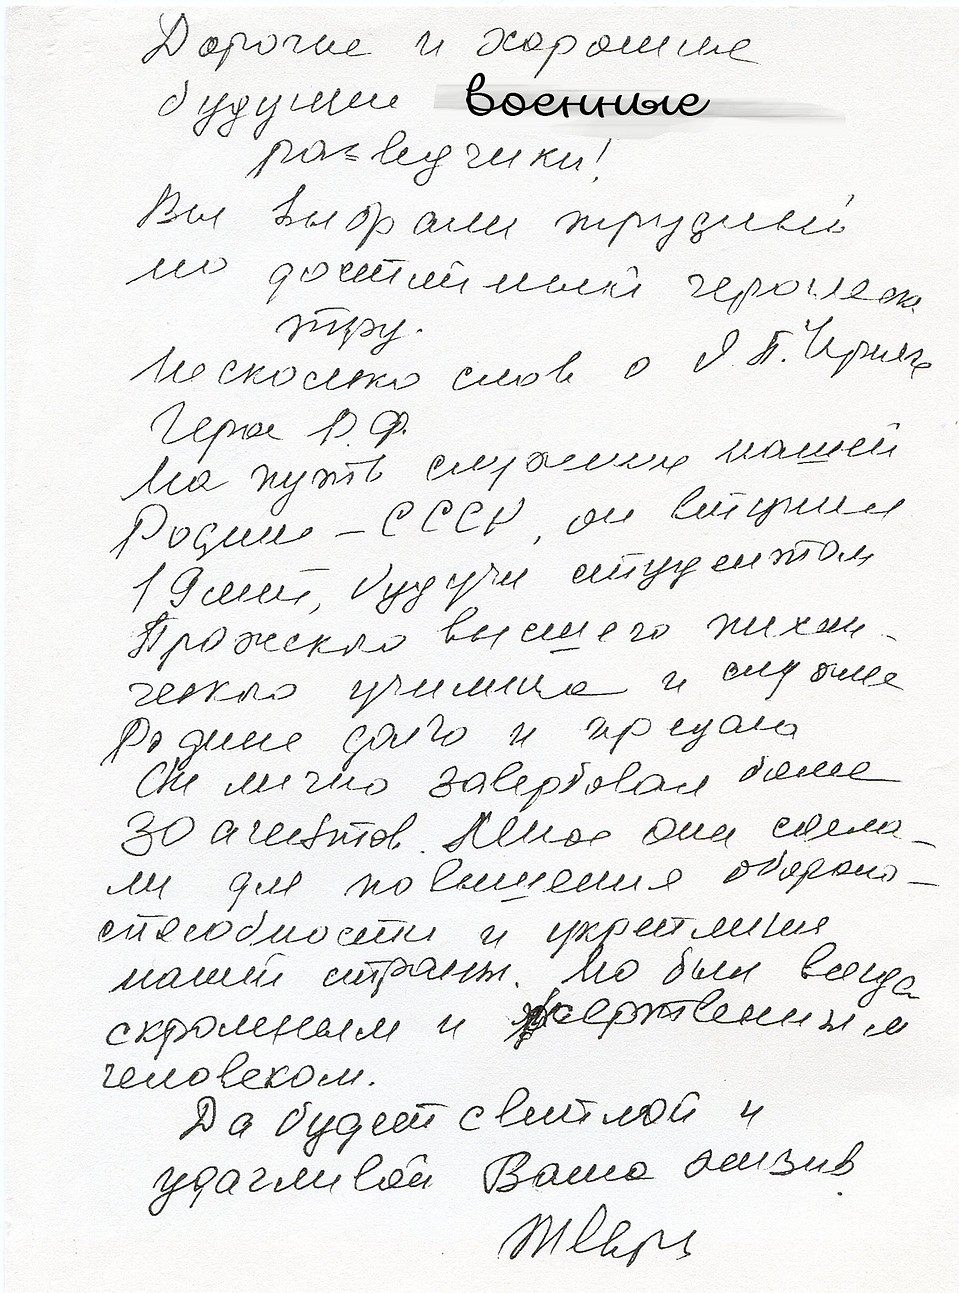 Дорогие и хорошие
будущие военные
разведчики!
Вы выбрали трудный
но достойный
тру.
Несколько слов о Я.П. Черняке
Герое Р.Ф.
На путь служения нашей
Родине – СССР, он вступил
19 лет, будучи студентом
Пражского высшего техни-
ческого училища и служил
Родине долго и предано
Он лично завербовал более
30 агентов. Много они сдела-
ли для повышения обороно-
способности и укрепления
нашей страны. Но был всегда
скромным и жертвенным
человеком.
Да будет светлой и
удачливой Ваша жизнь